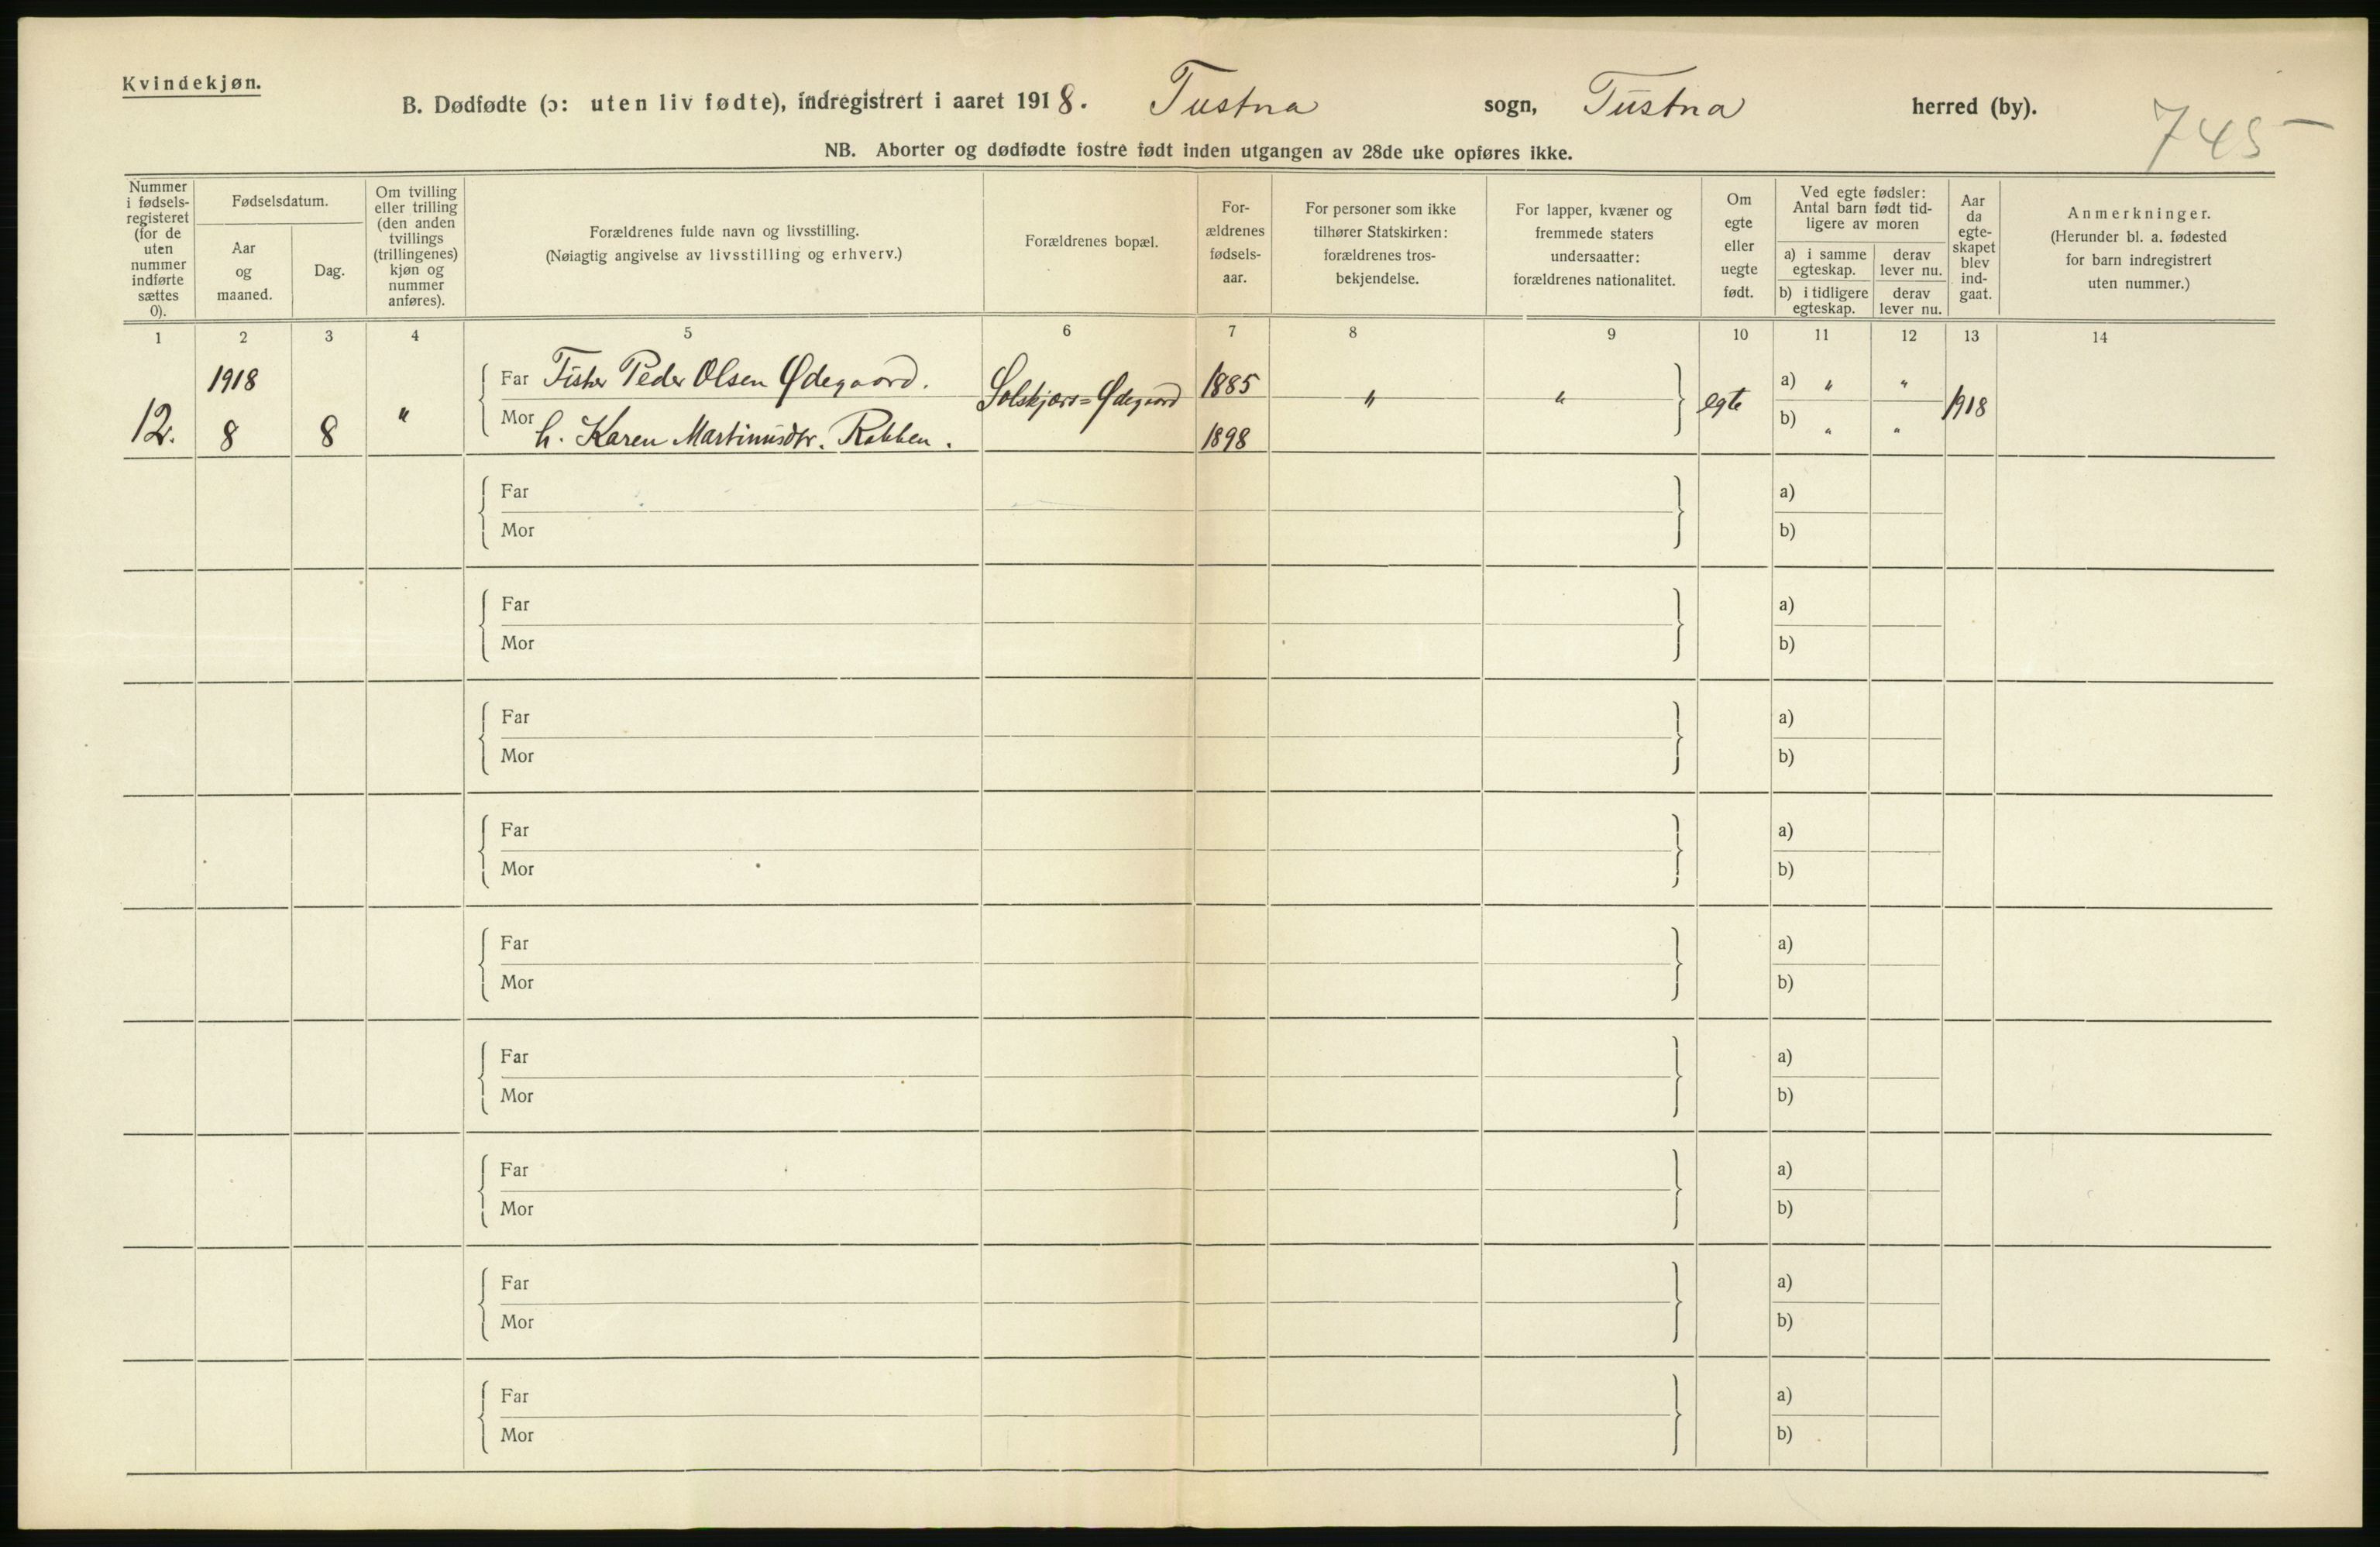 Kvindekjøn.
B. Dødfødte (ɔ: uten liv fødte), indregistrert i aaret 1918. Tustna sogn, Tustna herred (by).
745
NB. Aborter og dødfødte fostre født inden utgangen av 28de uke opføres ikke.
Nummer i fødsels-registeret (for de uten nummer indførte sættes 0).
Fødselsdatum.
Aar og maaned.
Dag.
Om tvilling eller trilling (den anden tvillings (trillingenes) kjøn og nummer anføres).
Forældrenes fulde navn og livsstilling.
(Nøiagtig angivelse av livsstilling og erhverv.)
Forældrenes bopæl.
For-ældrenes fødsels-aar.
For personer som ikke tilhører Statskirken: forældrenes tros-bekjendelse.
For lapper, kvæner og fremmede staters undersaatter: forældrenes nationalitet.
Om egte eller uegte født.
Ved egte fødsler: Antal barn født tid-ligere av moren
a) i samme egteskap.
derav lever nu.
b) i tidligere egteskap.
derav lever nu.
Aar da egte-skapet blev ind-gaat.
Anmerkninger.
(Herunder bl. a. fødested for barn indregistrert uten nummer.)
1 2 3 4 5 6 7 8 9 10 11 12 13 14
1918
Far Fisker Peder Olsen Ødegaard. Solskjærs=Ødegaard 1885 " " egte a) " " 1918
12. 8 8 "
Mor h. Karen Martinusdtr. Rabben. 1898 b) " "
Far a)
Mor b)
Far a)
Mor b)
Far a)
Mor b)
Far a)
Mor b)
Far a)
Mor b)
Far a)
Mor b)
Far a)
Mor b)
Far a)
Mor b)
Far a)
Mor b)